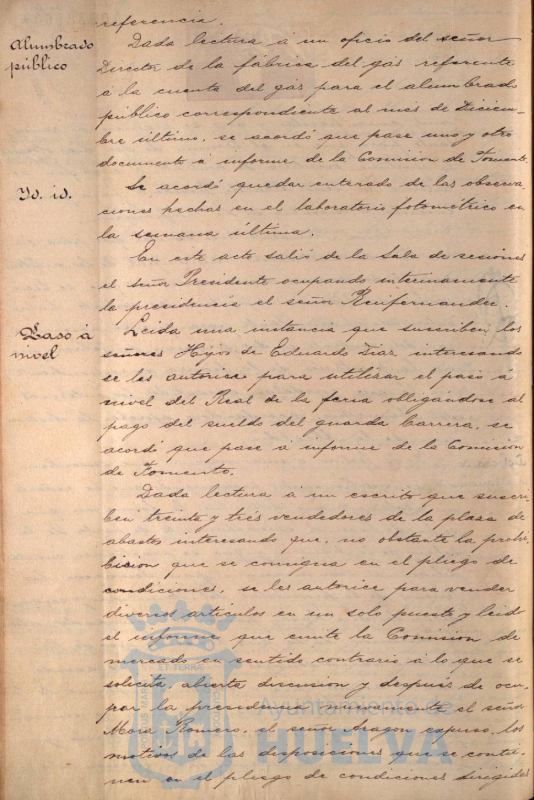 referencia.
Alumbrado
público
Dada lectura á un oficio del señor
Director de la fábrica del gas referente
á la cuenta del gas para el alumbrado
público correspondiente al més de Diciem-
bre último, se acordó que pase uno y otro
documento á informe de la Comision de Fomento.
Yd. id.
Se acordó quedar enterado de las observa
ciones hechas en el laboratorio fotométrico en
la semana última.
En este acto salió de la Sala de sesiones
el señor Presidente ocupando interinamente
la presidencia el señor Ruifernandez.
Paso á
nivel
Leida una instancia que suscriben los
señores Hijos de Eduardo Diaz interesando
se les autorice para utilizar el paso á
nivel del Real de la feria obligandose al
pago del sueldo del guarda barrera, se
acordó que pase á informe de la Comision
de Fomento.
Dada lectura á un escrito que suscri-
ben treinta y tres vendedores de la plaza de
abastos interesando que, no obstante la prohi
bicion que se consigna en el pliego de
condiciones, se les autorice para vender
diversos articulos en un solo puesto y leido
el informe que emite la Comision de
mercado en sentido contrario á lo que se
solicita, abierta discusion y después de ocu-
par la presidencia nuevamente el señor
Mora Romero, el señor Aragon expuso los
motivos de las disposiciones que se contie-
nen en el pliego de condiciones dirigidas
Ayuntamiento de
HUELVA